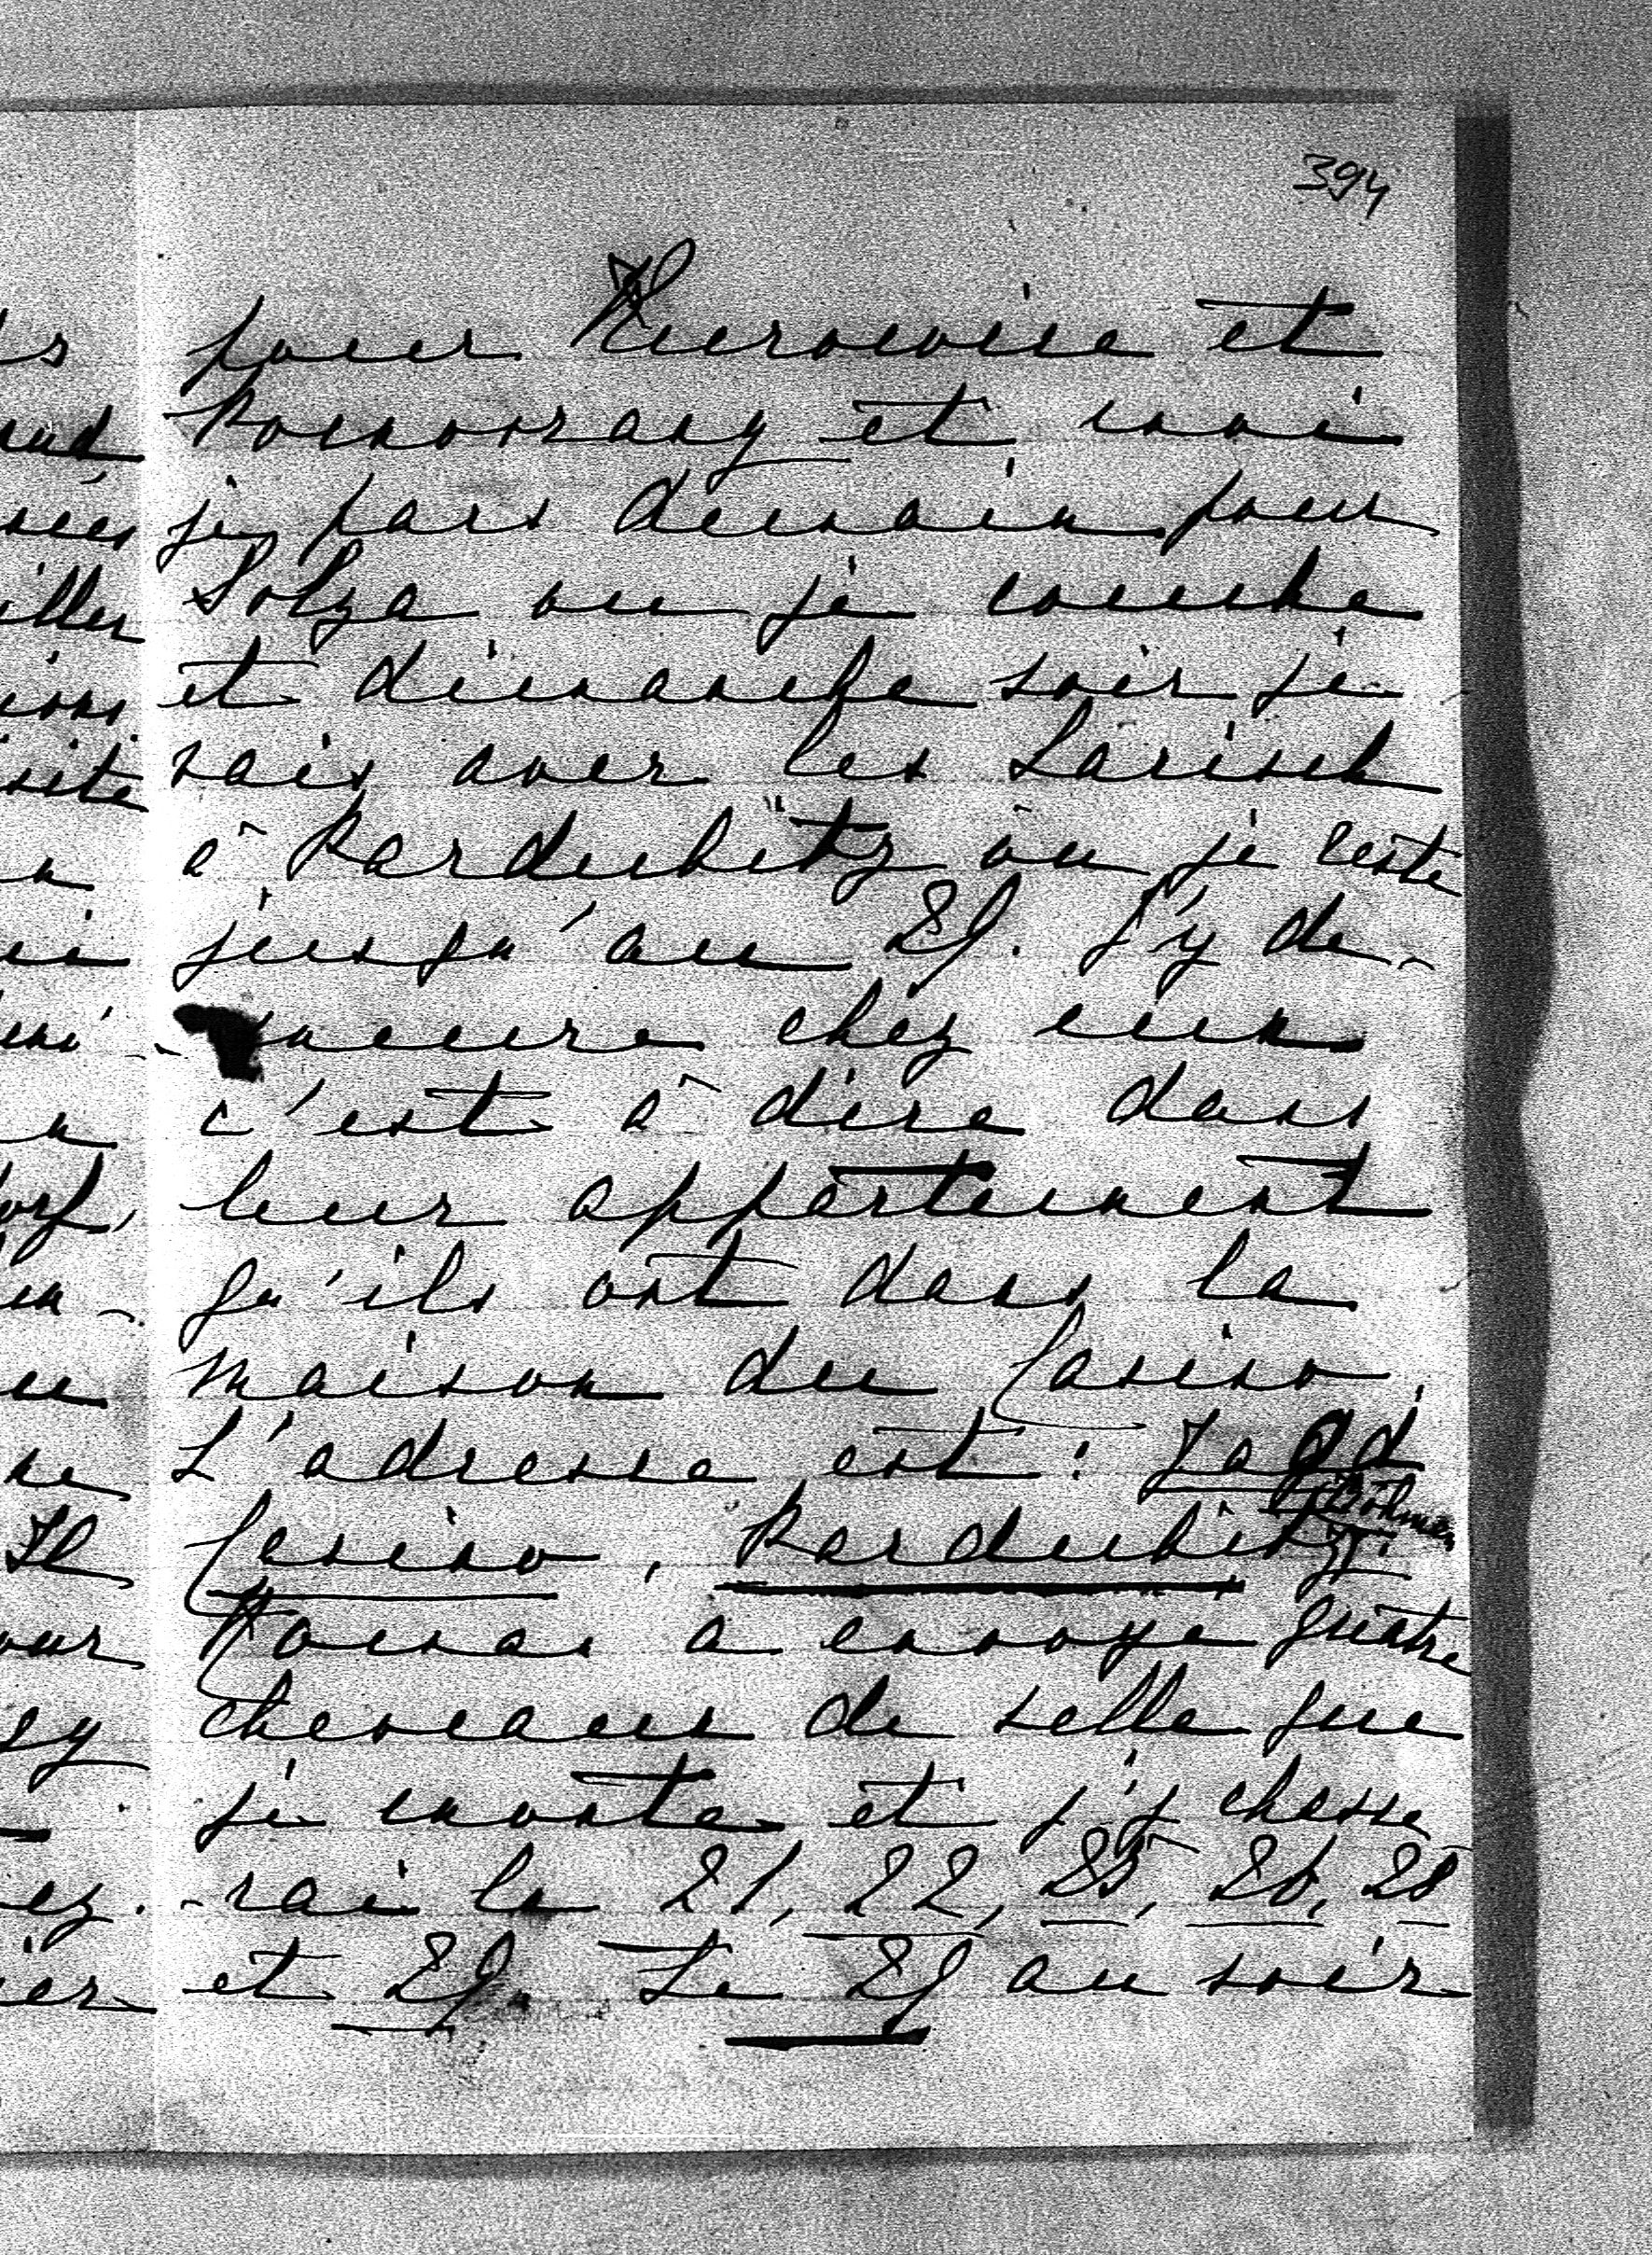 394
pour Kurowice et
Pomorzany et moi
je pars demain pour
Solza ou je couche
et dimanche soir je
vais avec les Larisch
à Pardubitz où je reste
jusqu'au 29. J'y de-
-meure chez eux
c'est à dire dans
leur appartement
qu'ils ont dans la
maison du Casino.
L'adresse est: Jagd
Casino, Pardubitz. Böhmen
a envoyé quatre
chevaux de selle que
je monte et j'y chasse
-rai le 21, 22, 25, 26, 28
et 29. Le 29 au soir